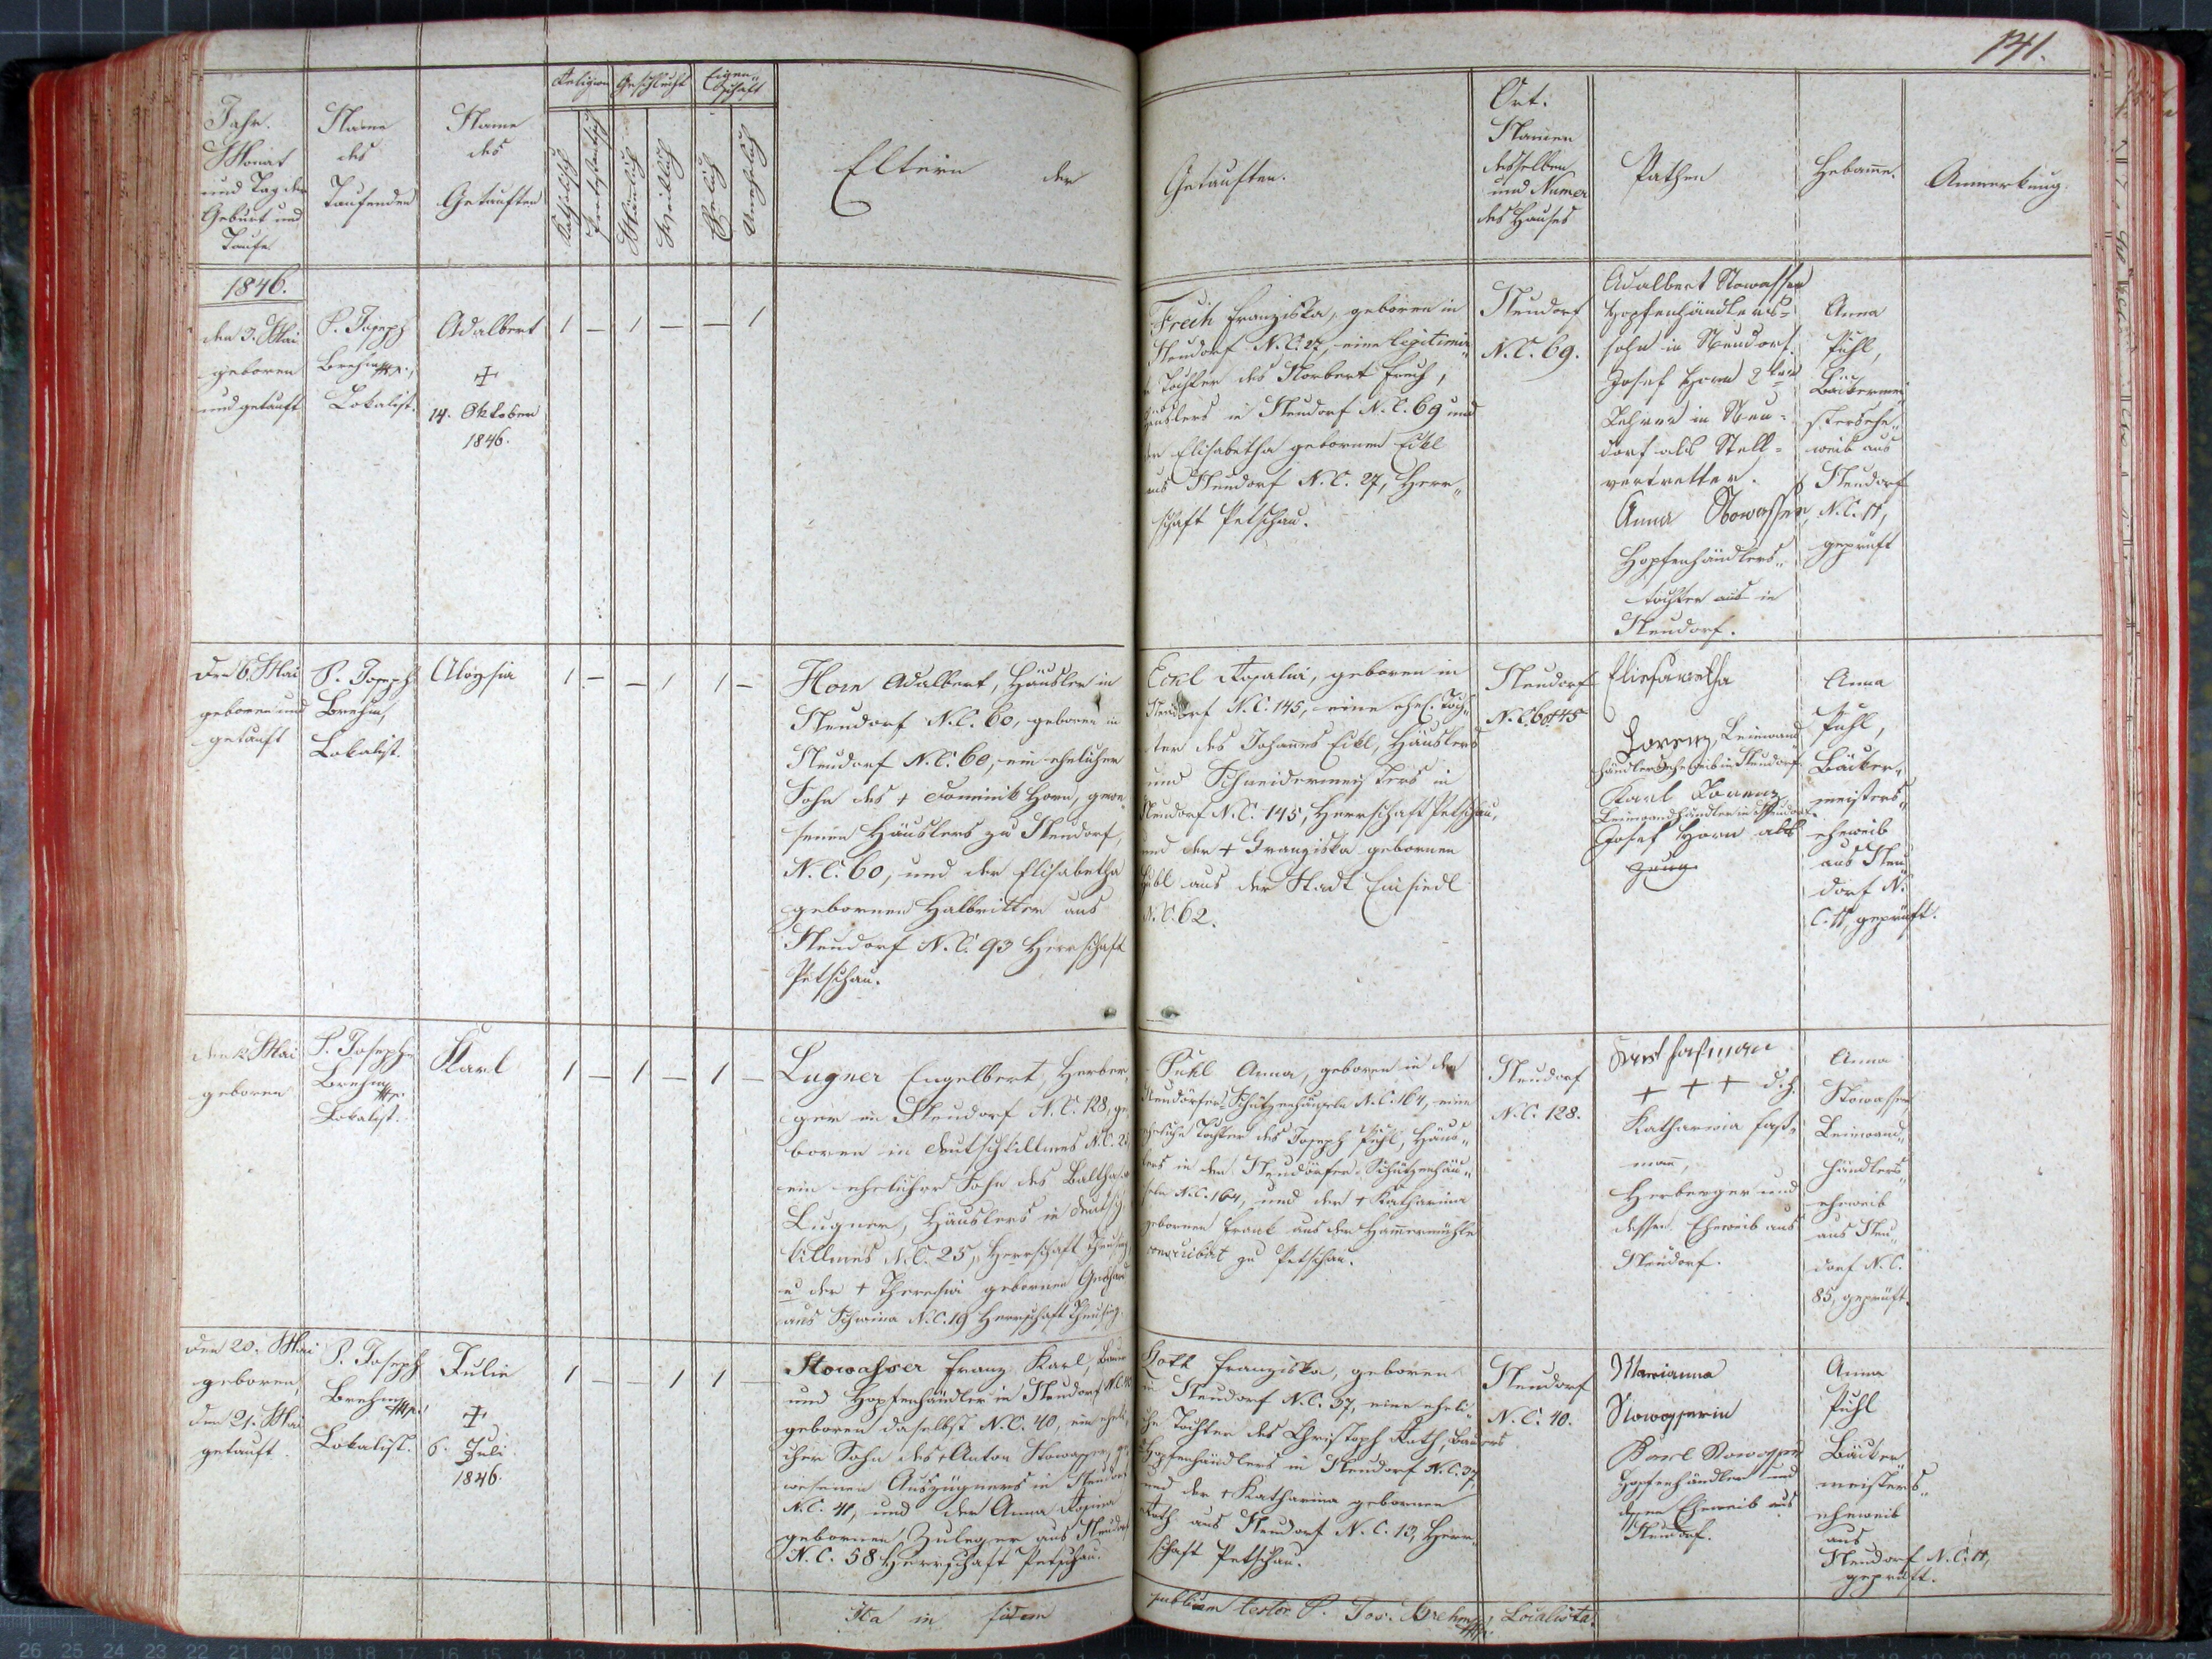 141.
Jahr.
Monat
und Tag der
Geburt und
Taufe
Name
des
Taufenden
Name
des
Getauften
Religion
Katholisch
Protestantisch
Geschlecht
Männlich
Weiblich
Eigen-
schaft
Ehelich
Unehelich
Eltern der
Getauften.
Ort.
Namen
desselben
und Numer
des Hauses
Pathen
Hebamme.
Anmerkung.
1846.
den 3. Mai
geboren
und getauft
P. Joseph
Brehm mp.,
Lokalist.
Adalbert
+
14. Oktober
1846.
1 — 1 — — 1
Frech Franziska, geboren in
Neudorf N.C. 27, eine legitimir-
Tochter des Norbert Frech,
Häuslers in Neudorf N.C. 69 und
der Elisabetha gebornen Eckl
aus Neudorf N.C. 27, Herr-
schaft Petschau.
Neudorf
N.C. 69.
Adalbert Stowasser
Hopfenhändlers-
sohn in Neudorf.
Josef Horn 2ter
Lehrer in Neu-
dorf als Stell-
vertretter.
Anna Stowasser,
Hopfenhändlers-
tochter aus in
Neudorf.
Anna
Puhl,
Bäckermei-
stersehe-
weib aus
Neudorf
N.C. 11,
geprüft
Den 6. Mai
geboren und
getauft
P. Joseph
Brehm,
Lokalist.
Aloysia
1 — — 1 1 —
Horn Adalbert, Häusler in
Neudorf N.C. 60, geboren in
Neudorf N.C. 60, ein ehelicher
Sohn des + Dominik Horn, gewe-
senen Häuslers zu Neudorf,
N.C. 60, und der Elisabetha
gebornen Halbritter aus
Neudorf N.C. 93 Herrschaft
Petschau.
Eckl Rosalia, geboren in
Neudorf N.C. 145, eine ehel. Toch-
ter des Johannes Eckl, Häuslers
und Schneidermeisters in
Neudorf N.C. 145, Herrschaft Petschau,
und der + Franziska gebornen
aus der Stadt Einsiedl
N.C. 62.
Neudorf
N.C. 145
Eliesawetha
Lorenz, Leinwand
händlers Eheweib in Neudorf
Karl Lorenz
Leinwandhändler in Neudorf.
Josef Horn als
Zeug
Anna
Puhl,
Bäcker-
meisters-
eheweib
aus Neu-
dorf N.
C. 11, geprüft.
den 12. Mai
geboren
P. Joseph
Brehm
mp.
Lokalist.
Karl
1 — 1 — 1 —
Lugner Engelbert, Herber-
ger in Neudorf N.C. 128, ge-
boren in Deutschkillmes N.C. 25,
ein ehelicher Sohn des Balthasar
Lugner, Häuslers in Deutsch-
killmes N.C. 25, Herrschaft Theusing,
u der + Theresia gebornen
aus Schwina N.C. 19 Herrschaft Theusing.
Puhl Anna, geboren in den
Neudorfer Schützenhäuseln N.C. 164, eine
eheliche Tochter des Joseph Puhl, Häus-
lers in den Neudorfer Schützenhäu-
seln N.C. 164, und der + Katharina
gebornen Frank aus der Hammermühle
conscribirt zu Petschau.
Neudorf
N.C. 128.
+ + + d. h.
Katharina Faß-
mann,
Herberger und
dessen Eheweib aus
Neudorf.
Anna
Stowasser
Leinwand-
händlers-
eheweib
aus Neu-
dorf N.C.
85, geprüft.
Den 20. Mai
geboren,
den 21. Mai
getauft.
P. Joseph
Brehm mp.
Lokalist.
Julie
+
6. Juli
1846.
1 — — 1 1 —
Stowasser Franz Karl, Bauer
und Hopfenhändler in Neudorf N.C. 40
geboren daselbst N.C. 40, ein eheli-
cher Sohn des + Anton Stowasser, ge-
wesenen Auszügners in Neudorf
N.C. 41, und der Anna Rosina
gebornen Zuleger aus Neudorf
N.C. 58 Herrschaft Petschau.
Roth Franziska, geboren
in Neudorf N.C. 37, eine eheli-
che Tochter des Christoph Roth, Bauers
u Hopfenhändlers in Neudorf N.C. 37,
und der + Katharina gebornen
Roth aus Neudorf N.C. 13, Herr-
schaft Petschau.
Neudorf
N.C. 40.
Marianna
Stowasserin
Karl Stowasser
Hopfenhändler und
dessen Eheweib aus
Neudorf.
Anna
Puhl
Bäcker
meisters-
eheweib
aus
Neudorf N.C. 11,
geprüft.
Ita in fidem
publicam testor P. Jos. Brehm mp. Localista.